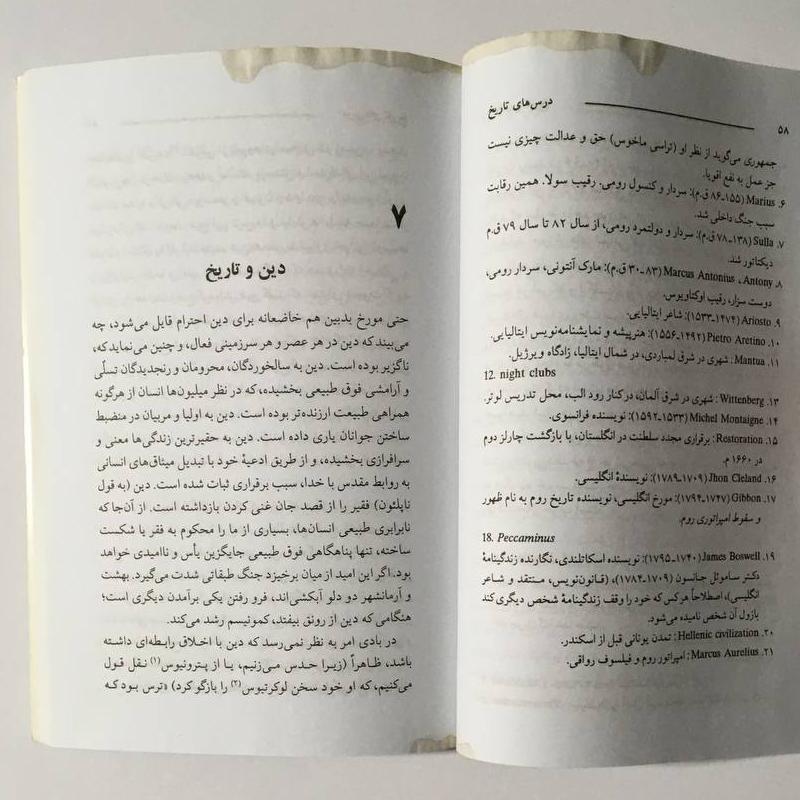 درس‌های تاریخ
۵۸
جمهوری می‌گوید از نظر او (تراسی ماخوس) حق و عدالت چیزی نیست
جز عمل به نفع اقویا.
۶. Marius (۱۵۵-۸۶ ق.م): سردار و کنسول رومی. رقیب سولا. همین رقابت
سبب جنگ داخلی شد.
۷. Sulla (۱۳۸-۷۸ ق.م): سردار و دولتمرد رومی، از سال ۸۲ تا سال ۷۹ ق.م
دیکتاتور شد.
۸. Marcus Antonius ، Antony (۸۳-۳۰ ق.م): مارک آنتونی، سردار رومی،
دوست سزار، رقیب اوکتاویوس.
۹. Ariosto (۱۴۷۴-۱۵۳۳): شاعر ایتالیایی.
۱۰. Pietro Aretino (۱۴۹۲-۱۵۵۶): هنرپیشه و نمایشنامه‌نویس ایتالیایی.
۱۱. Mantua: شهری در شرق لمباردی، در شمال ایتالیا، زادگاه ویرژیل.
12. night clubs
۱۳. Wittenberg: شهری در شرق آلمان، در کنار رود الب، محل تدریس لوتر.
۱۴. Michel Montaigne (۱۵۳۳-۱۵۹۲): نویسنده فرانسوی.
۱۵. Restoration: برقراری مجدد سلطنت در انگلستان، با بازگشت چارلز دوم
در ۱۶۶۰ م.
۱۶. Jhon Cleland (۱۷۰۹-۱۷۸۹): نویسندهٔ انگلیسی.
۱۷. Gibbon (۱۷۴۷-۱۷۹۴): مورخ انگلیسی، نویسنده تاریخ روم به نام ظهور
و سقوط امپراتوری روم.
18. Peccaminus
۱۹. James Boswell (۱۷۴۰-۱۷۹۵): نویسنده اسکاتلندی، نگارنده زندگینامهٔ
دکتر ساموئل جانسون (۱۷۰۹-۱۷۸۴)، (قانون‌نویس، منتقد و شاعر
انگلیسی)، اصطلاحاً هر کس که خود را وقف زندگینامهٔ شخص دیگری کند
بازول آن شخص نامیده می‌شود.
۲۰. Hellenic civilization: تمدن یونانی قبل از اسکندر.
۲۱. Marcus Aurelius: امپراتور روم و فیلسوف رواقی.
۷
دین و تاریخ
حتی مورخ بدبین هم خاضعانه برای دین احترام قایل می‌شود، چه
می‌بیند که دین در هر عصر و هر سرزمینی فعال، و چنین می‌نماید که،
ناگزیر بوده است. دین به سالخوردگان، محرومان و رنجدیدگان تسلّی
و آرامشی فوق طبیعی بخشیده، که در نظر میلیون‌ها انسان از هرگونه
همراهی طبیعت ارزنده‌تر بوده است. دین به اولیا و مربیان در منضبط
ساختن جوانان یاری داده است. دین به حقیرترین زندگی‌ها معنی و
سرافرازی بخشیده، و از طریق ادعیهٔ خود با تبدیل میثاق‌های انسانی
به روابط مقدس با خدا، سبب برقراری ثبات شده است. دین (به قول
ناپلئون) فقیر را از قصد جان غنی کردن بازداشته است. از آن‌جا که
نابرابری طبیعی انسان‌ها، بسیاری از ما را محکوم به فقر یا شکست
ساخته، تنها پناهگاهی فوق طبیعی جایگزین یأس و ناامیدی خواهد
بود. اگر این امید از میان برخیزد جنگ طبقاتی شدت می‌گیرد. بهشت
و آرمانشهر دو دلو آبکشی‌اند، فرو رفتن یکی برآمدن دیگری است؛
هنگامی که دین از رونق بیفتد، کمونیسم رشد می‌کند.
در بادی امر به نظر نمی‌رسد که دین با اخلاق رابطه‌ای داشته
باشد، ظاهراً (زیرا حدس می‌زنیم، یا از پترونیوس(۱) نقل قول
می‌کنیم، که او خود سخن لوکرتیوس(۲) را بازگو کرد) «ترس بود که